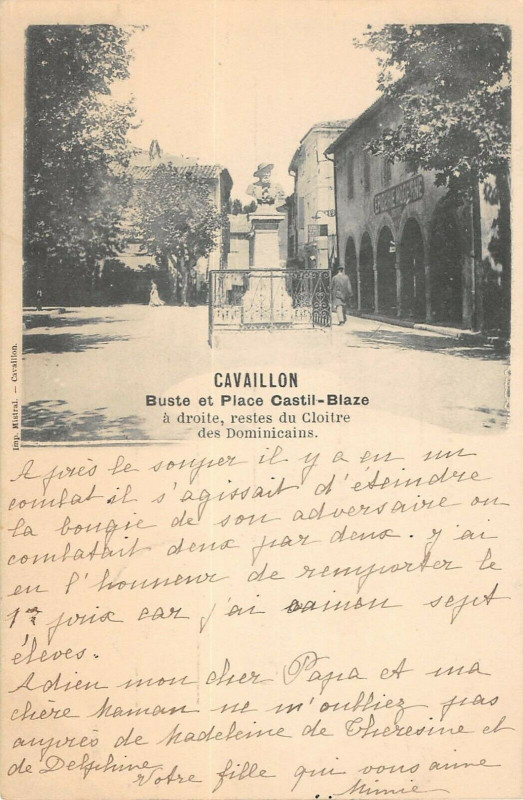 CAVAILLON
Buste et Place Castil-Blaze
à droite, restes du Cloitre
des Dominicains.
Imp. Mistral. — Cavaillon.
Après le souper il y a eu un
combat il s'agissait d'éteindre
la bougie de son adversaire on
combatait deux par deux. j'ai
eu l'honneur de remporter le
1er prix car j'ai vaincu sept
éleves.
Adieu mon cher Papa et ma
chère Maman ne m'oubliez pas
auprès de Madeleine de Theresine et
de Delphine
Votre fille qui vous aime
Mimie